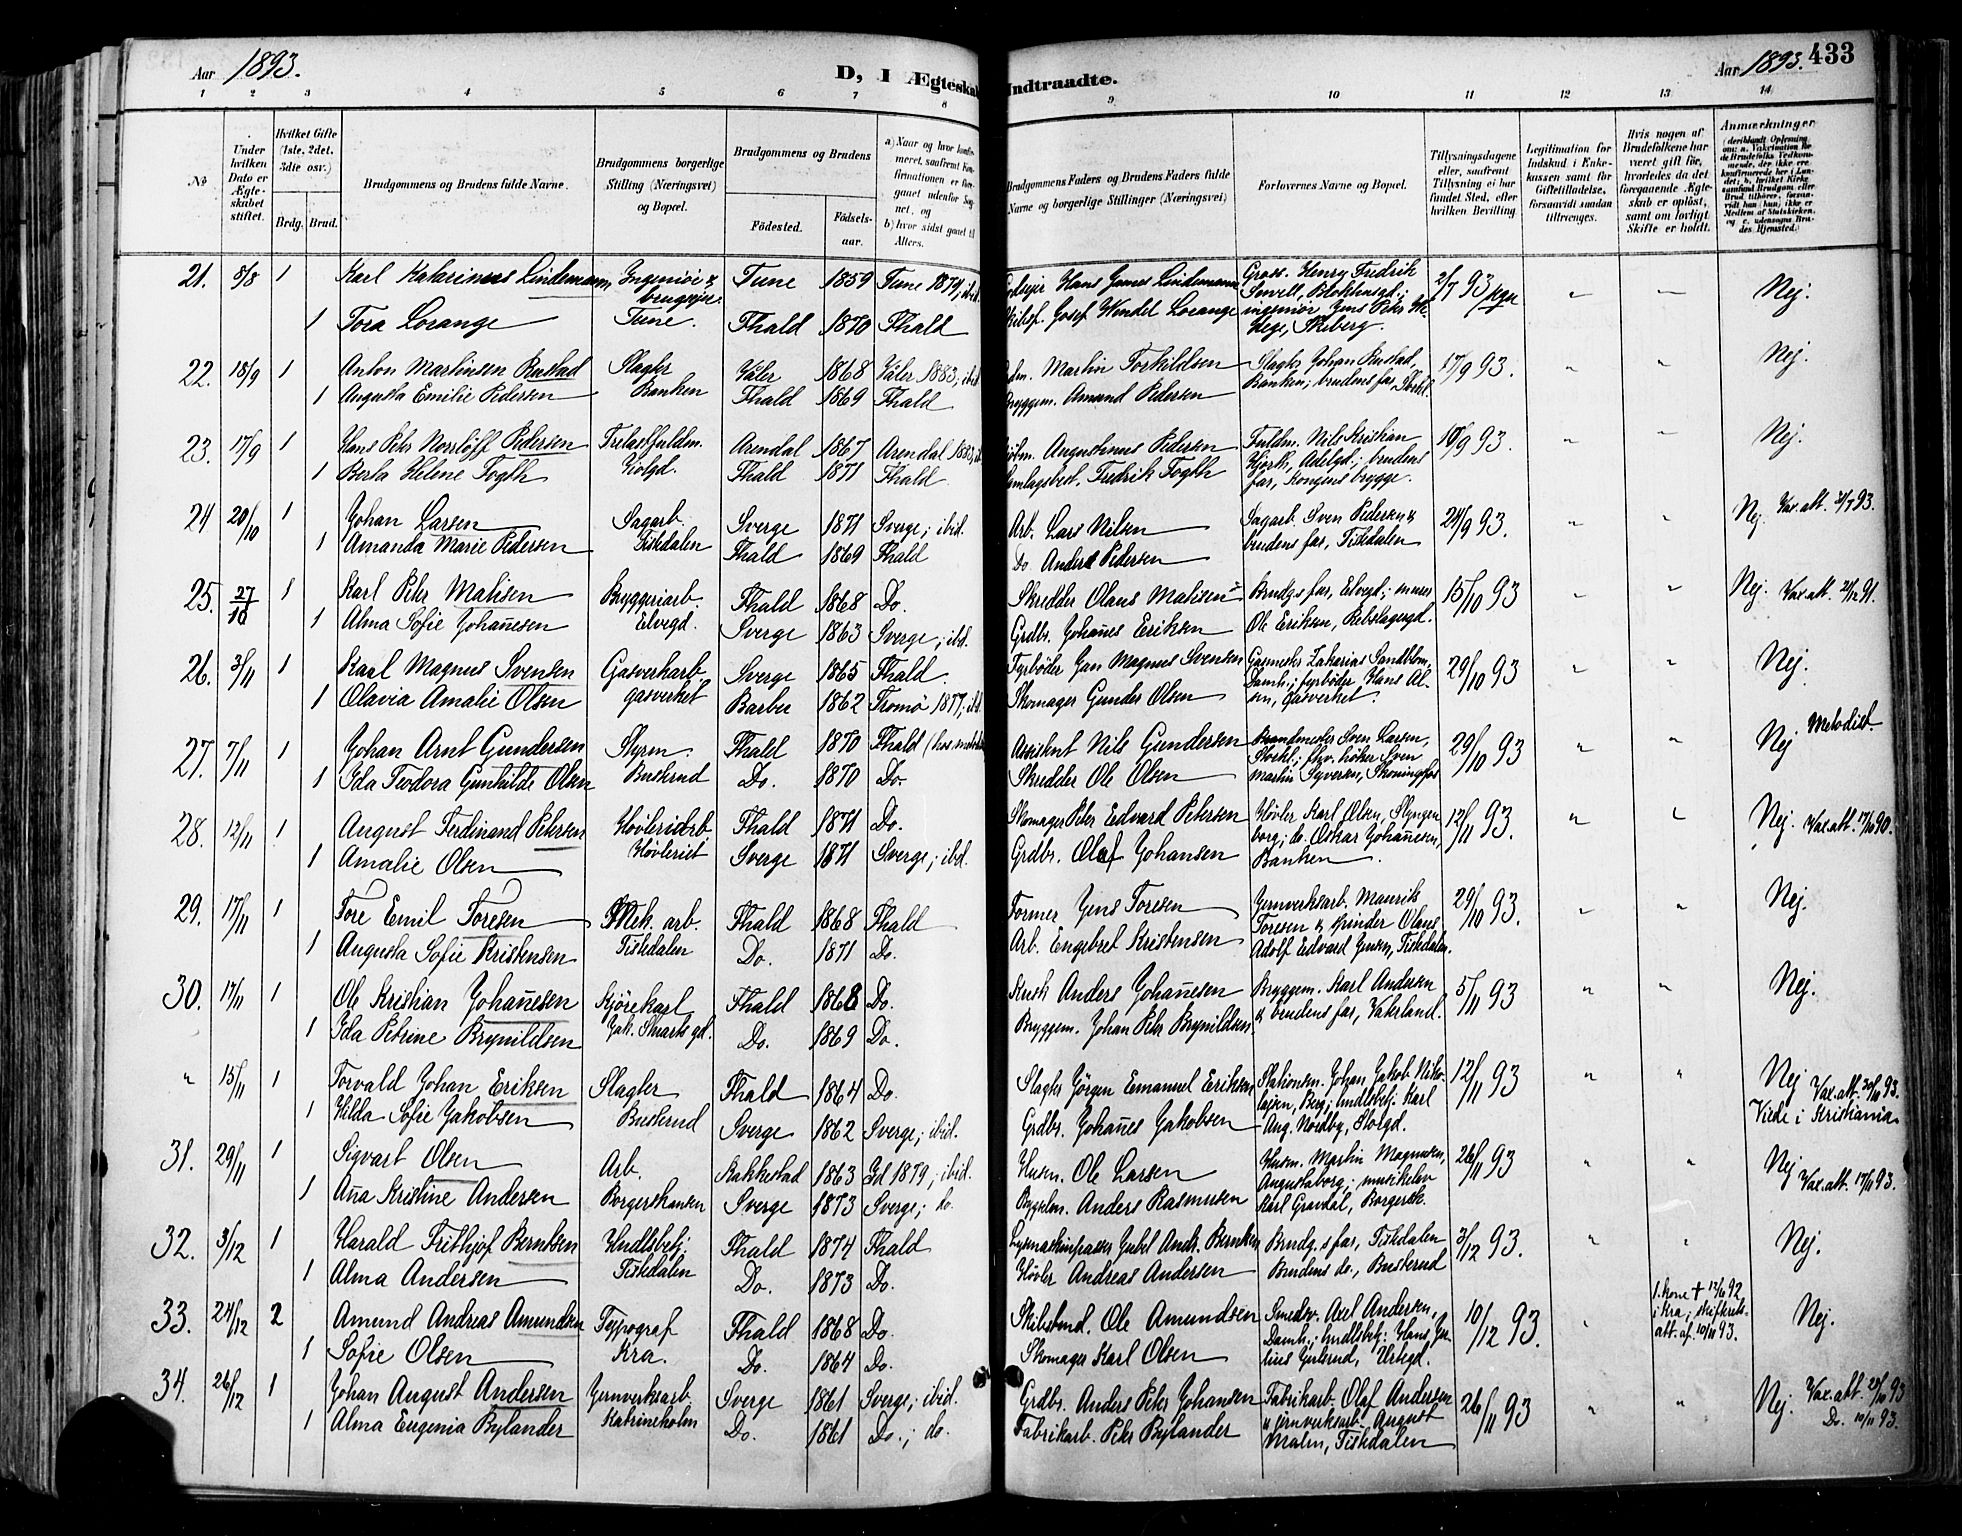 Aar 1893.
D, I Ægteskab Indtraadte.
Aar 1893. 433
1 2 3 4 5 6 7 8 9 10 11 12 13 14
No
Under hvilken Dato er Ægteskabet stiftet.
Hvilket Gifte (1ste, 2det, 3die osv.)
Brdg. Brud.
Brudgommens og Brudens fulde Navne.
Brudgommens borgerlige Stilling (Næringsvei) og Bopæl.
Brudgommens og Brudens
Födested.
Födselsaar.
a) Naar og hvor
b) hvor sidst gaaet til Alters.
Brudgommens Faders og Brudens Faders fulde Navne og borgerlige Stillinger (Næringsvei)
Forlovernes Navne og Bopæl.
Tillysningsdagene eller, saafremt Tillysning ei har fundet Sted, efter hvilken Bevilling
Legitimation for Indskud i Enkekassen samt for Giftetilladelse, forsaavidt saadan tiltrænges.
Hvis nogen af Brudefolkene har været gift før, hvorledes da det foregaaende Ægteskab er opløst, samt om lovligt Skifte er holdt.
Anmærkninger
21. 8/8 1 Karl Katarinus Lindemann, Ingeniør & Tune 1859 Tune 1874; ibid. Hans James Lindemann Gross. Henry Fredrik 2/7 93 Nej.
1 Tora Lorange Tune. Fhald 1870 Fhald Josef Wendel Lorange
22. 18/9 1 Anton Martinsen Rustad Slagter Våler 1868 Våler 1883; ibid. Martin Torkildsen Slagter Johan Rustad, 17/9 93. Nej.
1 Augusta Emilie Pedersen Banken Fhald 1869 Fhald Bryggem. Amund Pedersen Banken; brudens far,
23. 17/9 1 Hans Peter Pedersen Arendal 1867 Arendal 1883, Augustinus Pedersen Fuldm. Nils Kristian 10/9 93. Nej.
1 Berta Helene Fogth Violgd. Fhald 1871 Fhald Fredrik Fogth Hjorth, Adelgd.; brudens far, Kongens brygge.
24 20/10 1 Johan Larsen Sagarb. Sverge 1871 Sverge; ibid. Arb. Lars Nilsen Sagarb. Sven Pedersen & 24/9 93. Nej. Vax.att. 31/7 93.
1 Amanda Marie Pedersen Tistedalen Fhald 1869 Fhald Do Anders Pedersen brudens far, Tistedalen
25. 27/10 1 Karl Peter Matisen Bryggeriarb. Fhald 1868 Do. Skredder Olaus Matisen Brudg.s far, Elvegd.; murer 15/10 93 Nej. Vax.att. 21/12 91.
1 Alma Sofie Johannesen Elvegd. Sverge 1863 Sverge; ibd. Grdbr. Johanes Eriksen Ole Eriksen, Rebslagergd.
26. 3/11 1 Karl Magnus Svensen Gasverkarb. Sverge 1865 Fhald. Fyrbøder Jan Magnus Svensen Gasmester Zakarias Sandblom, 29/10 93 Nej.
1 Olavia Amalie Olsen gasverket Barbu 1862 Tromø 1877; ibd. Skomager Gunder Olsen Damh.; fyrbøder Hans Olsen, Gasverket.
27. 7/11 1 Johan Arnt Gundersen Styrm. Fhald 1870 Fhald Assistent Nils Gundersen Brandmester Sven Larsen, 29/10 93 Nej Metodist.
1 Ida Teodora Gunhilde Olsen Busterud Do. 1870 Do. Skredder Ole Olsen høker Sven Martin Syversen, Skoningfos
28. 12/11 1 August Ferdinand Petersen Høvleriarb. Fhald 1871 Do. Skomager Peter Edvard Petersen Høvler Karl Olsen, Slyngenborg; do. Oskar Johanesen, 12/11 93. Nej. Vax.att. 17/10 90.
1 Amalie Olsen Høvleriet Sverge 1871 Sverge; ibd. Grdbr. Olaf Johansen Banken.
29. 17/11 1 Tore Emil Toresen Mek. arb. Fhald 1868 Fhald Former Jens Toresen Jernverksarb. Maurits 29/10 93. Nej.
1 Augusta Sofie Kristensen Tistedalen Do. 1871 Do. Arb. Engebret Kristensen Toresen & Spinder Olaus Adolf Edvard Jensen, Tistedalen.
30. 17/11 1 Ole Kristian Johanesen Kjørekarl Fhald 1868 Do. Kusk Anders Johanesen Bryggem. Karl Andersen 5/11 93 Nej.
1 Ida Petrine Brynildsen Jak. Stuarts gd. Do. 1869 Do. Bryggem. Johan Peter Brynildsen & brudens far, Vaterland.
" 15/11 1 Torvald Johan Eriksen Slagter Fhald 1864 Do. Slagter Jørgen Emanuel Eriksen Stationsm. Johan Jakob Nikolajsen, Berg; hndlsbetj. Karl 12/11 93 Nej Vax.att. 30/10 93.
1 Hilda Sofie Jakobsen Busterud Sverge 1862 Sverge; ibid. Grdbr. Johanes Jakobsen Aug. Nordby, Storgd. Viede i Kristiania
31. 29/11 1 Sigvart Olsen Arb. Rakkestad 1863 Id 1879; ibid. Husm. Ole Larsen Husm. Martin Magnusen, 26/11 93 Nej Vax.att. 17/11 93.
1 Ana Kristine Andersen Borgerskansen Sverge 1873 Sverge; do. Anders Rasmusen Augustaborg; musikelev Karl Gravdal, Borgersk.
32. 3/12 1 Harald Frithjof Berntsen Hndlsbetj. Fhald 1874 Fhald Andr. Berntsen Brudg.s far, Tistedalen 3/12 93. Nej.
1 Alma Andersen Tistedalen Do. 1873 Do. Høvler Andreas Andersen Brudens do., Busterud
33. 24/12 2 Amund Andreas Amundsen Typograf Fhald 1868 Do. Ole Amundsen Smedsv. Axel Andersen, 10/12 93. 1. kone + 13/6 92 i Kra; skifterets att. af. 10/11 93. Nej.
1 Sofie Olsen Kra. Do. 1864 Do. Skomager Karl Olsen Damh.; hndlsbetj. Hans
34. 26/12 1 Johan August Andersen Jernverksarb. Sverge 1861 Sverge; ibid. Grdbr. Anders Peter Johansen Fabrikarb. Olaf Andersen 26/11 93 Nej. Vax.att. 23/10 93
1 Alma Eugenia Bylander Katrineholm Do. 1861 Do.; do. Fabrikarb. Peter Bylander & jernverksarb. August Malm, Tistedalen Do. 10/11 93.